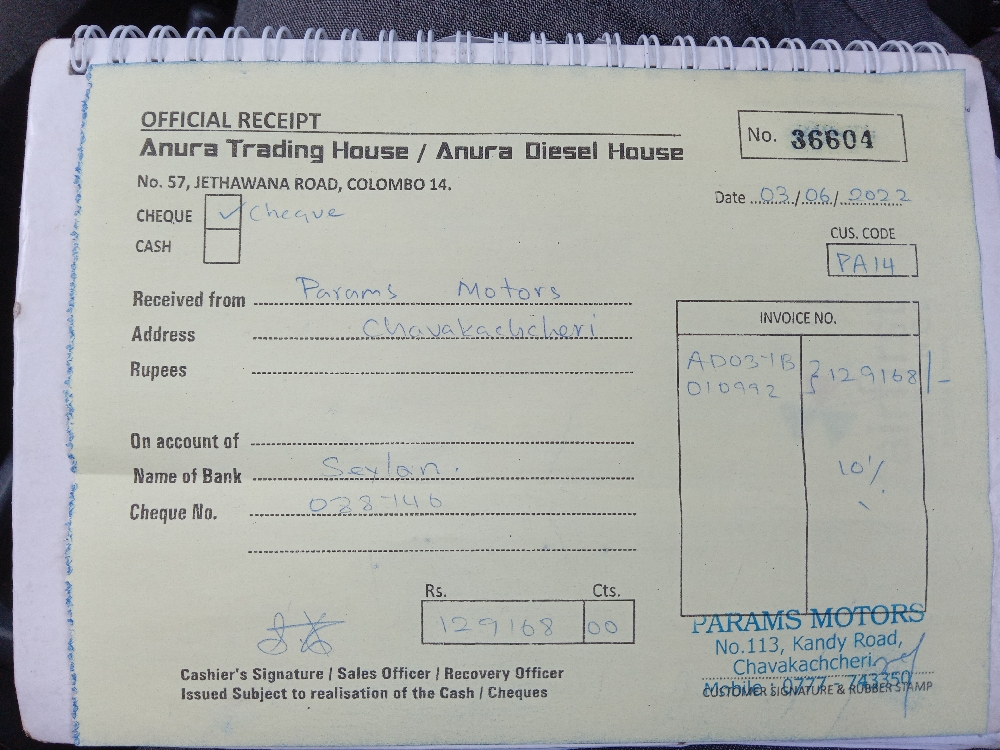 OFFICIAL RECEIPT
No. 36604
Anura Trading House / Anura Diesel House
No. 57, JETHAWANA ROAD, COLOMBO 14.
Date 03/06/2022
CHEQUE ✓ Cheque
CASH
CUS. CODE
PA14
Received from Params Motors
Address Chavakachcheri
Rupees
INVOICE NO.
AD037B
010992 } 129168/-
10%
On account of
Name of Bank Seylan.
Cheque No. 038746
Rs. Cts.
129168 00
Cashier's Signature / Sales Officer / Recovery Officer
Issued Subject to realisation of the Cash / Cheques
PARAMS MOTORS
No.113, Kandy Road,
Chavakachcheri.
Mobile : 0777 - 743350
CUSTOMER SIGNATURE & RUBBER STAMP